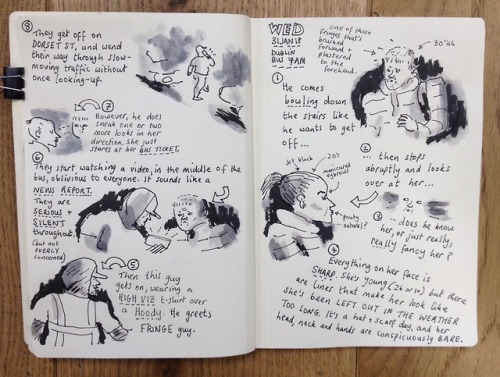 ⑧
They get off on
DORSET ST, and wend
their way through slow-
moving traffic without
once looking-up.
⑦
However, he does
sneak one or two
more looks in her
direction, she just
stares at her BUS TICKET.
⑥
They start watching a video, in the middle of the
bus, oblivious to everyone. It sounds like a
NEWS REPORT.
They are
SERIOUS +
SILENT
throughout
(but not
overly
concerned)
⑤
Then this guy
gets on, wearing a
HIGH VIZ t-shirt over
a Hoody. He greets
FRINGE guy.
WED
31 JAN 18
DUBLIN
BUS 7AM
one of those
fringes that's
brushed
forward +
plastered to
the forehead.
30'ish
①
He comes
bowling down
the stairs like
he wants to get
off...
②
... then stops
abruptly and looks
over at her...
Jet black
20%
manicured
eyebrows
Pouty
natural?
③
...does he know
her, or just really,
really fancy her?
④
Everything on her face is
SHARP. She's young (26 or so) but there
are lines that make her look like
she's been LEFT OUT IN THE WEATHER
TOO LONG. It's a hat + scarf day, and her
head, neck and hands are conspicuously BARE.